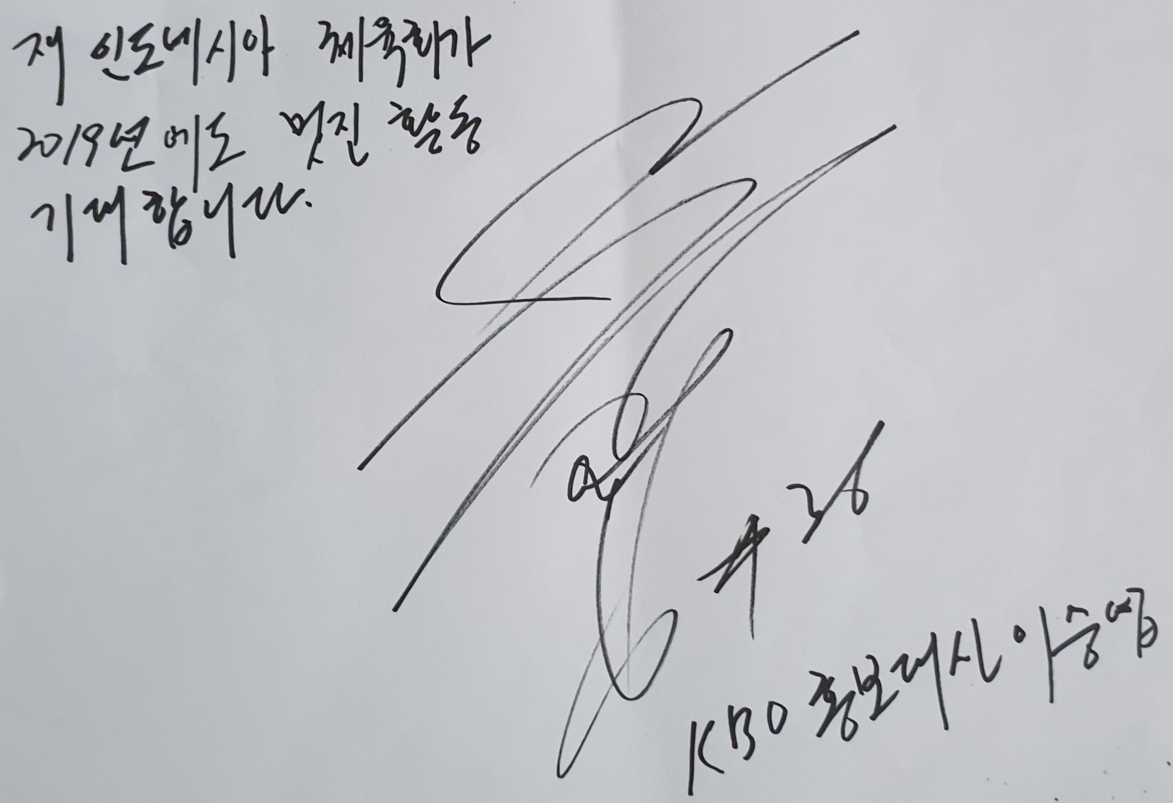 재 인도네시아 체육회가
2019년에도 멋진 활동
기대합니다.
#36
KBO 홍보대사 이승엽